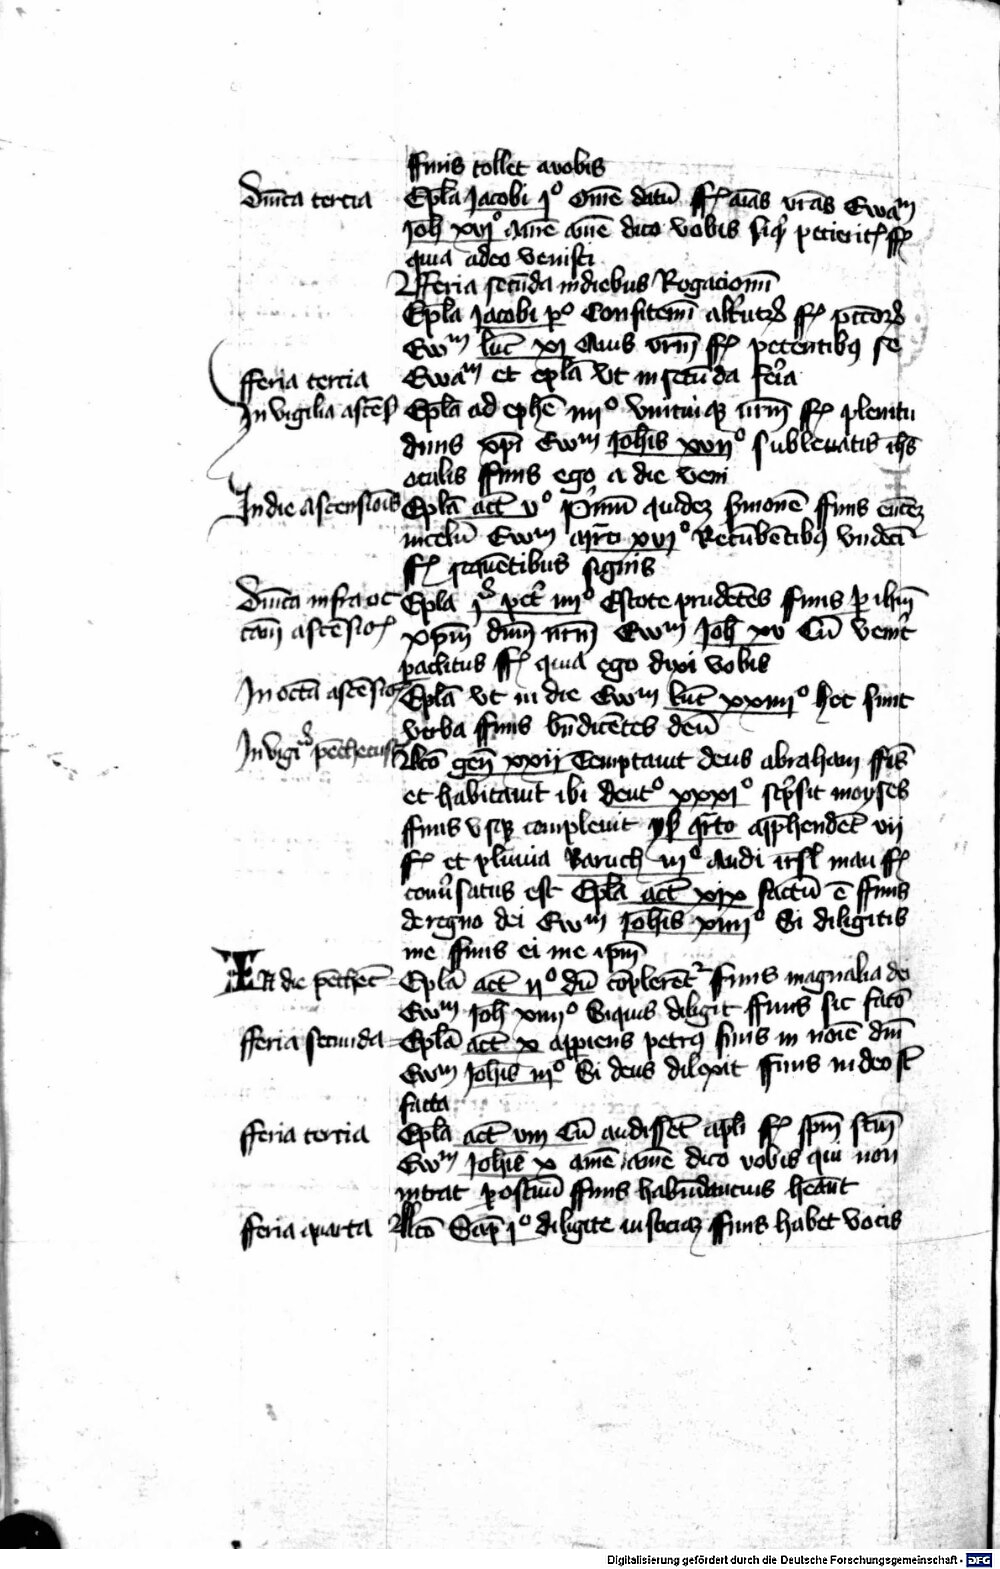 ffinis tollet avobis
Dnica tercia Epla Jacobi jº Omē datū ff aīas vrās Ewaᵐ
Joh xvjº Amē amē dico vobis siqd petieritis ff
quia adeo venisti
Fferia secūda indiebus Rogacionū
Epla Jacobi pº Confitemī ff
Ewᵐ luc xj Quis vrm ff petentibus se
fferia tercia Ewaᵐ et epla vt in secūda feria
In vigilia ascens Epla ad ephe iiijº vnicuiqȝ nrm ff plenitu
dinis xpi Ewᵐ Johis xvijº sublevatis ihs
oculis ffinis ego a die veni
In die ascensiois Epla act jº Primū quidez smonē ffinis euntez
incelū Ewᵐ xvjº Recūbētibus vndecī
ff sequētibus signis
Dnica infra oc Epla jª pet iiijº Estote prudētes ffinis p ihm
tavā ascēsiois xpm dnm nrm Ewᵐ Joh xv Cū venit
paclitus ff quia ego dixi vobis
In octa ascēsiois Epla vt in die Ewᵐ luc xxiiijº hec sunt
verba ffinis bndicētes deū
In vigia pēthecust Lcō gen xxij Temptavit deus abraham ffis
et habitavit ibi deutº xxxjº scpsit moyses
ffinis vsqȝ complevit ys qrto apphendēt vij
ff et pluvia Baruch iijº Audi isrl man ff
convsatus est Epla act xix factū ē ffinis
deregno dei Ewᵐ Johis xiiijº Si diligitis
me ffinis ei me ipm
IN die pēthec Epla act ijº dū cōplerēt ffinis magnalia dei
Ewᵐ Joh xiiijº Siquis diligit ffinis sic facio
fferia secunda Epla act x appiens petrus ffinis in noīe dnī
Ewᵐ Johis iijº Si deus dilexit ffinis in deo st
facta
fferia tercia Epla act viij Cū audissēt apli ff spm scm
Ewᵐ Johis x amē amē dico vobis qui non
intrat p ostiū ffinis habūdancius heant
fferia quarta Lcō Sap jº diligite iusticiaȝ ffinis habet vocis
Digitalisierung gefördert durch die Deutsche Forschungsgemeinschaft - DFG